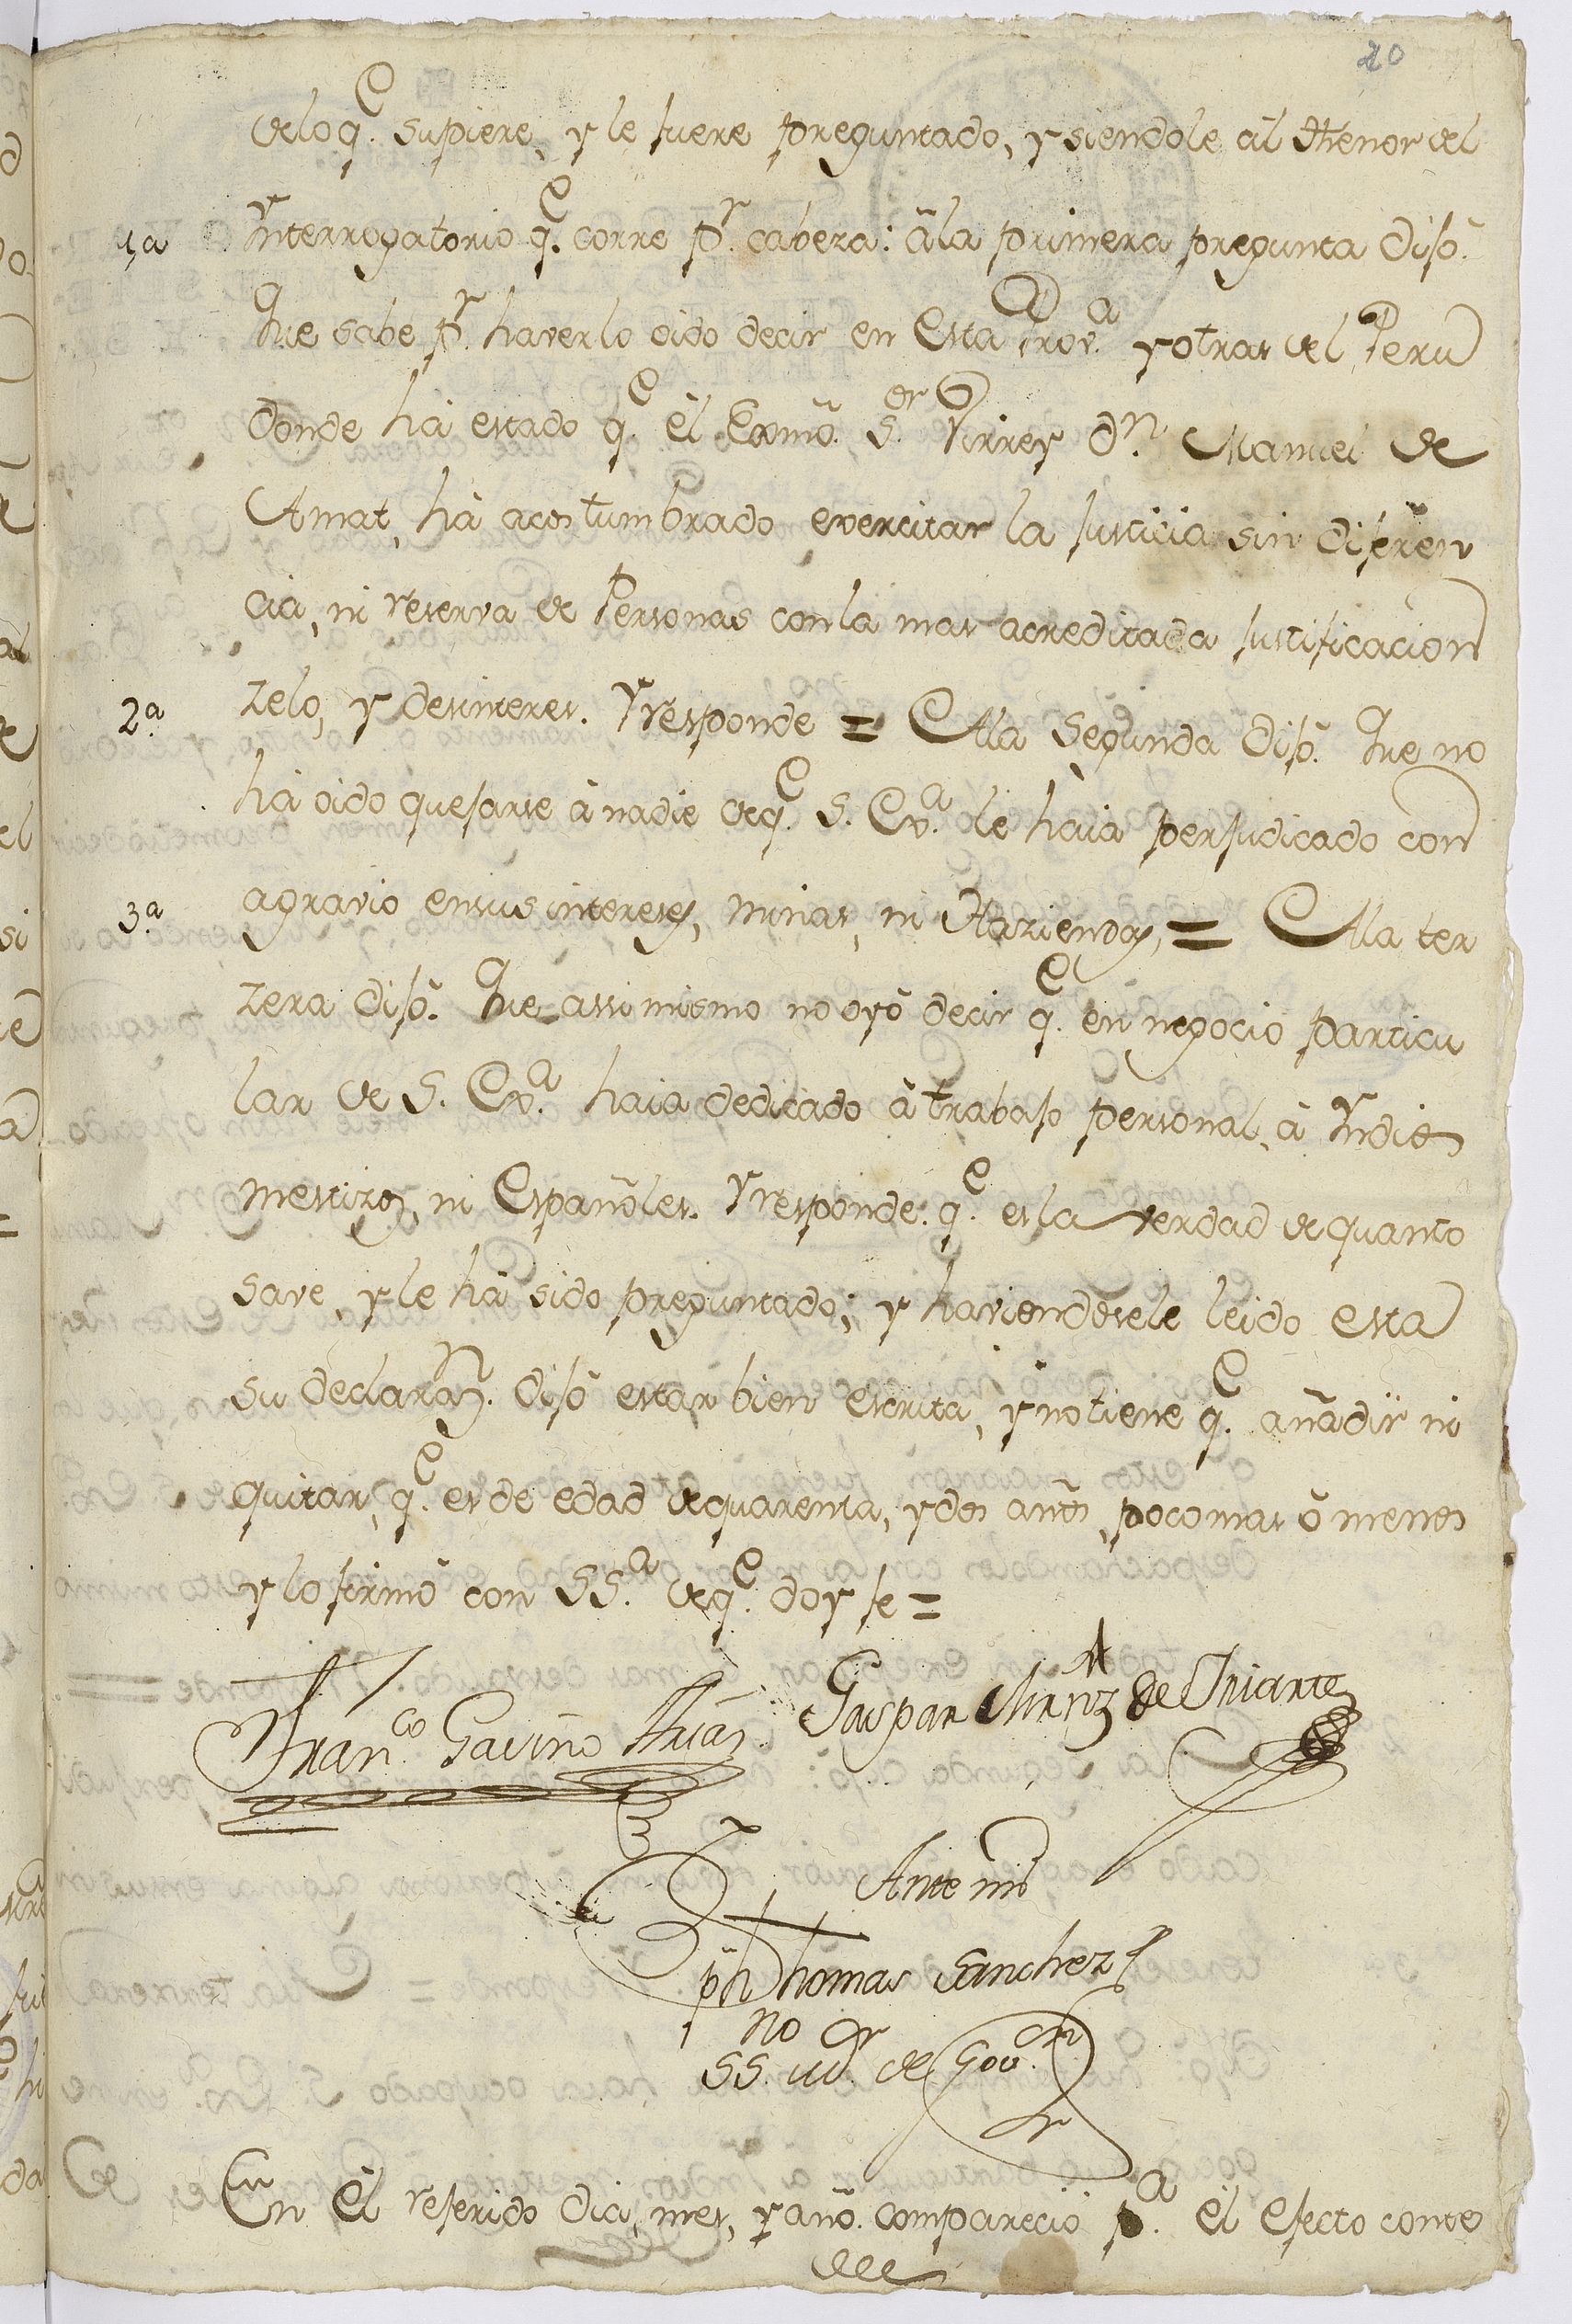 20
de lo q.e supiere, y le fuere preguntado, y siendole al thenor del
1,a Ynterrogatorio q.e corre p.r cabeza: â la primera pregunta dijô.
Que sabe p.r haverlo oido decir en esta Prov.a y otras del Perù
donde hà estado q.e êl Exmô. S.or Virrey d.n Manuel de
Amat, hà acostumbrado exercitar la justicia sin diferen
cia, ni reserva de Personas con la mas acreditada justificacion
2.a zelo, y desinteres. Y responde = A la segunda dijô. Que no
hà oido quejarse à nadie de q.e S. Ex.a le haia perjudicado con
3.a agravio en sus intereses, minas, ni Haziendas, = A la ter
zera dijô. Que assi mismo no oyô decir q.e en negocio particu
lar de S. Ex.a haia dedicado â trabajo personal, à Yndios
mestizos, ni Españoles. Y responde. q.e es la verdad de quanto
save, y le hà sido preguntado; y haviendosele leido esta
su declaraz.n dijô estar bien escrita, y no tiene q.e añadir ni
quitar, q.e es de edad de quarenta, y dos años, poco mas ô menos
y lo firmô con SS.a de q.e doy fe =
Fran.co Gavino Gaspar Mrnz de Yriarte
Ante mi
Thomas Sanchez
SS.no de Gov.on
En êl referido dia, mes, y año. comparecio p.a êl efecto conte